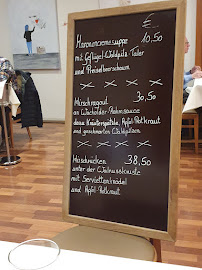 €
Maronencremesuppe 10,50
mit Geflügel-Waldpilz-Taler
und Preiselbeerschaum
Hirschragout 30,50
an Wacholder-Rahmsauce
dazu Kräuterspätzle, Apfel-Rotkraut
und geschmorten Waldpilzen
Hirschrücken 38,50
unter der Walnusskruste
mit Serviettenknödel
und Apfel-Rotkraut